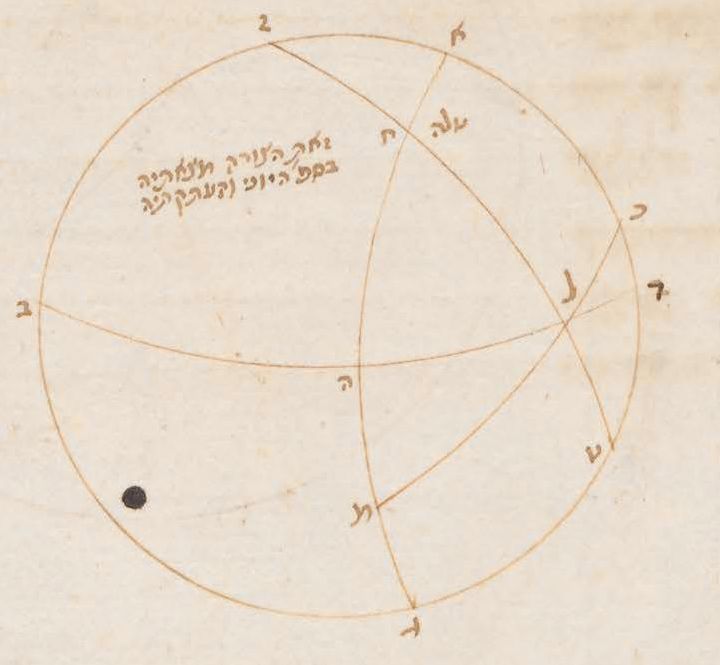 ז
א
ח
זאת הצורה מצאתיה
בספ' היוני והעתקתיה
כ
ל
ד
ב
ה
ט
מ
ג